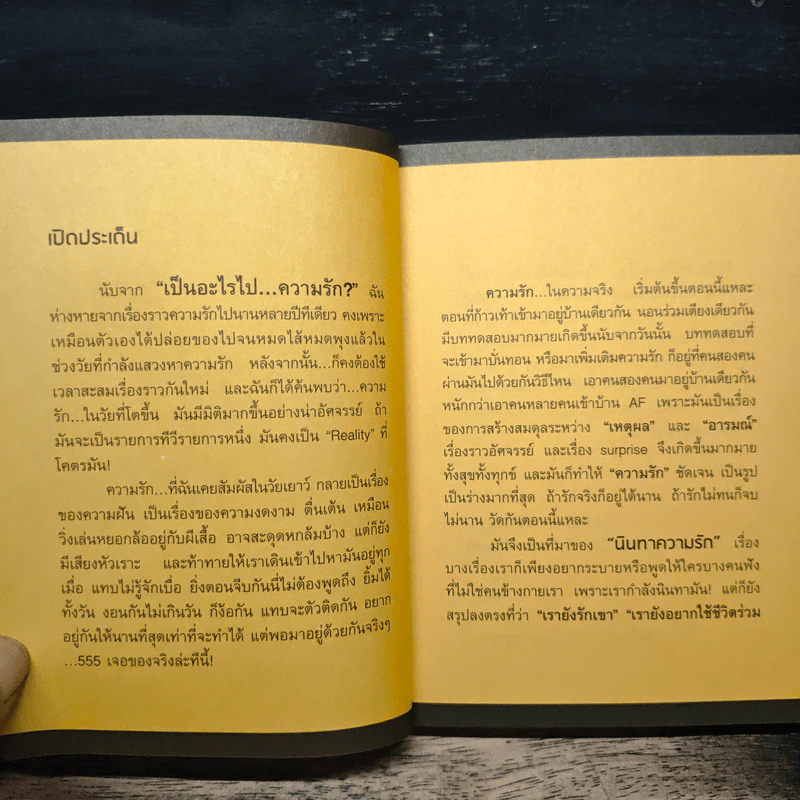 เปิดประเด็น
นับจาก “เป็นอะไรไป...ความรัก?” ฉัน
ห่างหายจากเรื่องราวความรักไปนานหลายปีทีเดียว คงเพราะ
เหมือนตัวเองได้ปล่อยของไปจนหมดไส้หมดพุงแล้วใน
ช่วงวัยที่กำลังแสวงหาความรัก หลังจากนั้น...ก็คงต้องใช้
เวลาสะสมเรื่องราวกันใหม่ และฉันก็ได้ค้นพบว่า...ความ
รัก...ในวัยที่โตขึ้น มันมีมิติมากขึ้นอย่างน่าอัศจรรย์ ถ้า
มันจะเป็นรายการทีวีรายการหนึ่ง มันคงเป็น “Reality” ที่
โคตรมัน!
ความรัก...ที่ฉันเคยสัมผัสในวัยเยาว์ กลายเป็นเรื่อง
ของความฝัน เป็นเรื่องของความงดงาม ตื่นเต้น เหมือน
วิ่งเล่นหยอกล้ออยู่กับผีเสื้อ อาจสะดุดหกล้มบ้าง แต่ก็ยัง
มีเสียงหัวเราะ และท้าทายให้เราเดินเข้าไปหามันอยู่ทุก
เมื่อ แทบไม่รู้จักเบื่อ ยิ่งตอนจีบกันนี่ไม่ต้องพูดถึง ยิ้มได้
ทั้งวัน งอนกันไม่เกินวัน ก็ง้อกัน แทบจะตัวติดกัน อยาก
อยู่กันให้นานที่สุดเท่าที่จะทำได้ แต่พอมาอยู่ด้วยกันจริงๆ
...555 เจอของจริงล่ะทีนี้!
ความรัก...ในความจริง เริ่มต้นขึ้นตอนนี้แหละ
ตอนที่ก้าวเท้าเข้ามาอยู่บ้านเดียวกัน นอนร่วมเตียงเดียวกัน
มีบททดสอบมากมายเกิดขึ้นนับจากวันนั้น บททดสอบที่
จะเข้ามาบั่นทอน หรือมาเพิ่มเติมความรัก ก็อยู่ที่คนสองคน
ผ่านมันไปด้วยกันวิธีไหน เอาคนสองคนมาอยู่บ้านเดียวกัน
หนักกว่าเอาคนหลายคนเข้าบ้าน AF เพราะมันเป็นเรื่อง
ของการสร้างสมดุลระหว่าง “เหตุผล” และ “อารมณ์”
เรื่องราวอัศจรรย์ และเรื่อง surprise จึงเกิดขึ้นมากมาย
ทั้งสุขทั้งทุกข์ และมันก็ทำให้ “ความรัก” ชัดเจน เป็นรูป
เป็นร่างมากที่สุด ถ้ารักจริงก็อยู่ได้นาน ถ้ารักไม่ทนก็จบ
ไม่นาน วัดกันตอนนี้แหละ
มันจึงเป็นที่มาของ “นินทาความรัก” เรื่อง
บางเรื่องเราก็เพียงอยากระบายหรือพูดให้ใครบางคนฟัง
ที่ไม่ใช่คนข้างกายเรา เพราะเรากำลังนินทามัน! แต่ก็ยัง
สรุปลงตรงที่ว่า “เรายังรักเขา” “เรายังอยากใช้ชีวิตร่วม